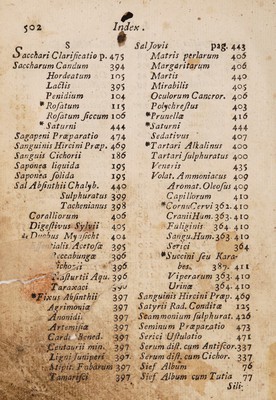 502 Index.
S
Sacchari Clarificatio p. 475
Saccharum Candum 394
Hordeatum 105
Lactis 395
Penidium 104
*Rosatum 115
Rosatum siccum 106
*Saturni 444
Sagapeni Præparatio 474
Sanguinis Hircini Præp. 469
Sanguis Cichorii 186
Saponea liquida 195
Saponea solida 195
Sal Absuthii Chalyb. 440
Sulphuratus 399
Tachenianus 398
Coralliorum 406
Digestivus Sylvii
de Duobus 404
Acetosæ 395
Beccabungæ 396
Cichorii 396
Nasturtii Aqu. 396
Taraxaci 397
*Fixus Absinthii 397
Agrimoniæ 397
Anonidis 397
Artemisiæ 397
Cardi Bened. 397
Centaurii min. 397
Ligni Juniperi 397
Stipit. Fabarum 397
Tamarisci 397
Sal Jovis pag. 443
Matris perlarum 406
Margaritarum 406
Martis 440
Mirabilis 405
Oculorum Cancror. 406
Polychrestus 403
*Prunellæ 416
*Saturni 444
Sedativus 407
*Tartari Alkalinus 400
Tartari sulphuratus 400
Veneris 435
Volat. Ammoniacus 409
Aromat. Oleosus 409
Capillorum 410
*Cornu Cervi 362.410
Cranii Hum. 363.410
Fuliginis 364.410
Sangu. Hum. 363.410
Serici 364
*Succini seu Karabes.
387. 411
Viperarum 363.410
Urinæ 364.410
Sanguinis Hircini Præp. 469
Satyrii Rad. Conditæ 125
Scammonium sulphurat. 426
Seminum Præparatio 473
Serici Ustulatio 471
Serum dist. cum Antiscor. 337
Serum dist. cum Cichor. 337
Sief Album 76
Sief Album cum Tutia 77
Sili-